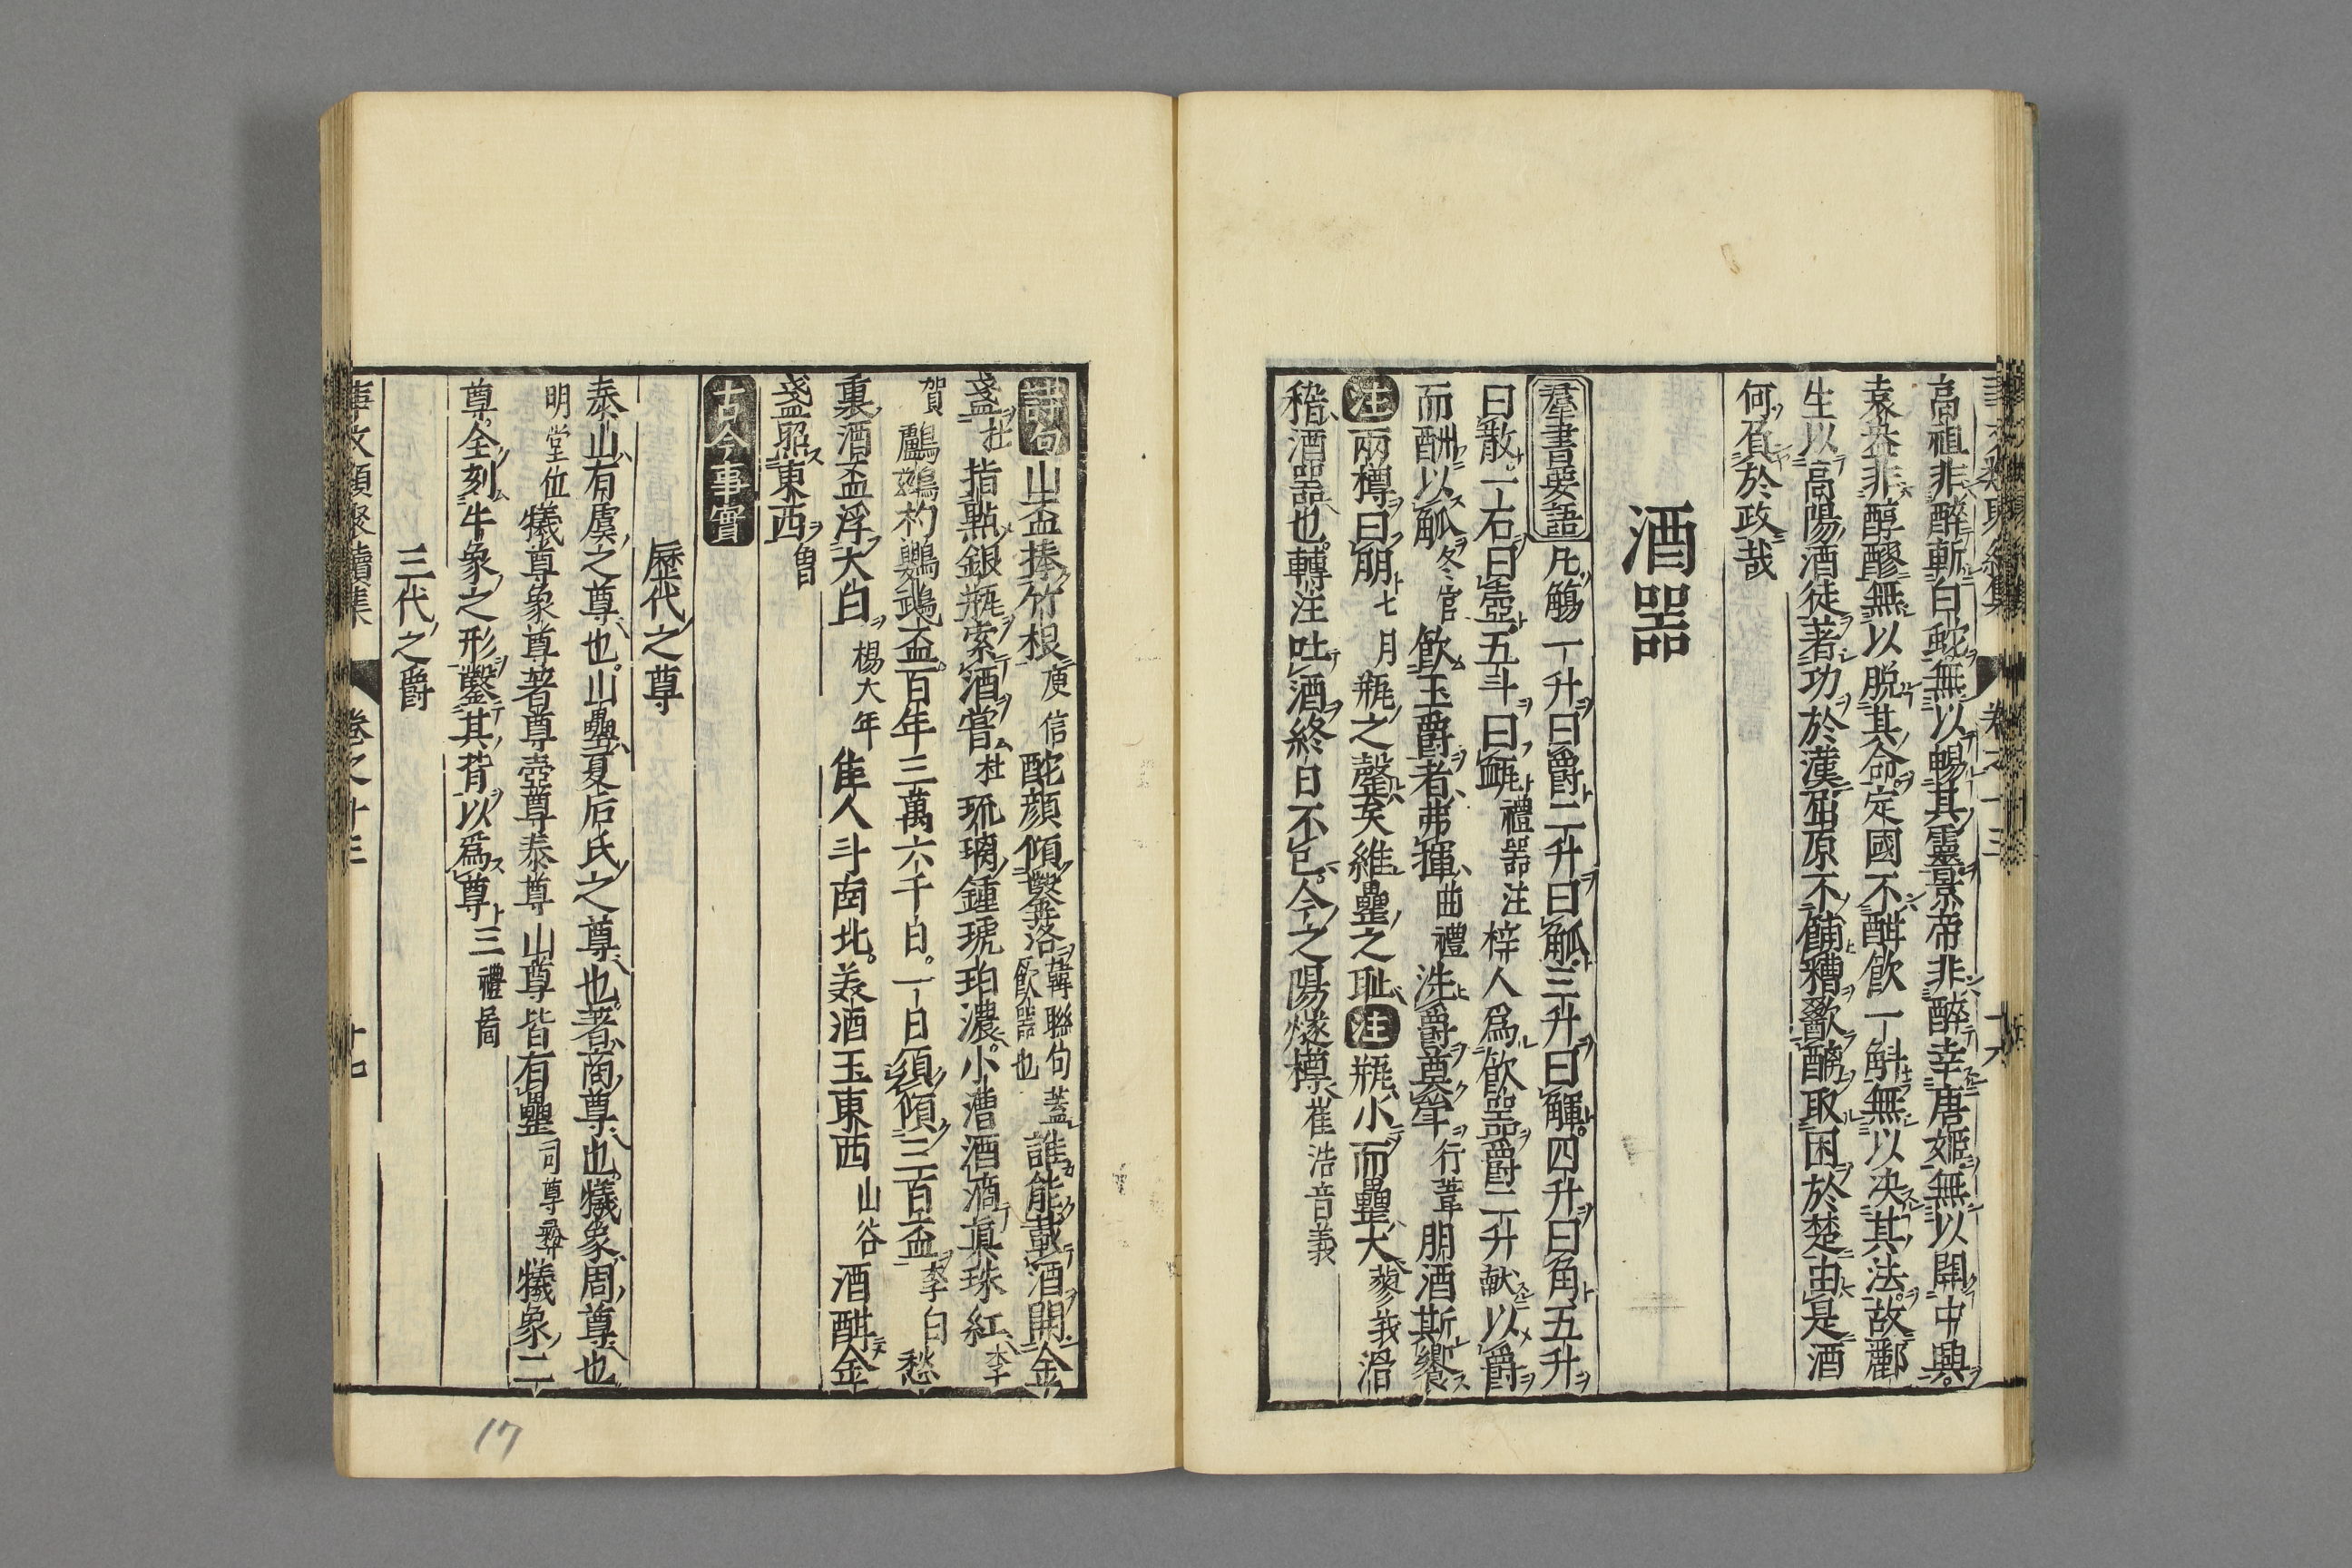 高祖非醉斬白蛇無以暢其靈景帝非醉幸唐姬無以開中興
袁盎非醇醪無以脱其命定國不酣飲一斛無以决其法故酈
生以高陽酒徒著功於漢屈原不餔糟歠醨取困於楚由是酒
何負於政哉
酒器
羣書要語 凡觴一升曰爵二升曰觚三升曰觶四升曰角五升
曰散一石曰壺五斗曰甒禮器注梓人爲飲器爵一升献以爵
而酬以觚冬官飲玉爵者弗揮曲禮洗爵奠斝行葦朋酒斯饗
注兩樽曰朋七月瓶之罄矣維罍之恥注瓶小而罍大蓼莪滑
稽酒器也轉注吐酒終日不已今之陽燧樽崔浩音義
詩句山盃捧竹根庾信酡顔傾鑿落韓聯句飲器也蓋誰能載酒開金
盞杜指點銀瓶索酒嘗杜琉璃鍾琥珀濃小漕酒滴真珠紅李
賀鸕鷀杓鸚鵡盃百年三萬六千日一日須傾三百盃李白愁
裏酒盃浮大白楊大年隹人斗南北美酒玉東西山谷酒酣金
盞照東西曾
古今事實
歷代之尊
泰山有虞之尊也山罍夏后氏之尊也著商尊也犧象周尊也
明堂位犧尊象尊著尊壺尊泰尊山尊皆有罍司尊彝犧象二
尊全刻牛象之形鑿其背以爲尊三禮圖
三代之爵
事文類聚續集 卷之十三 十七